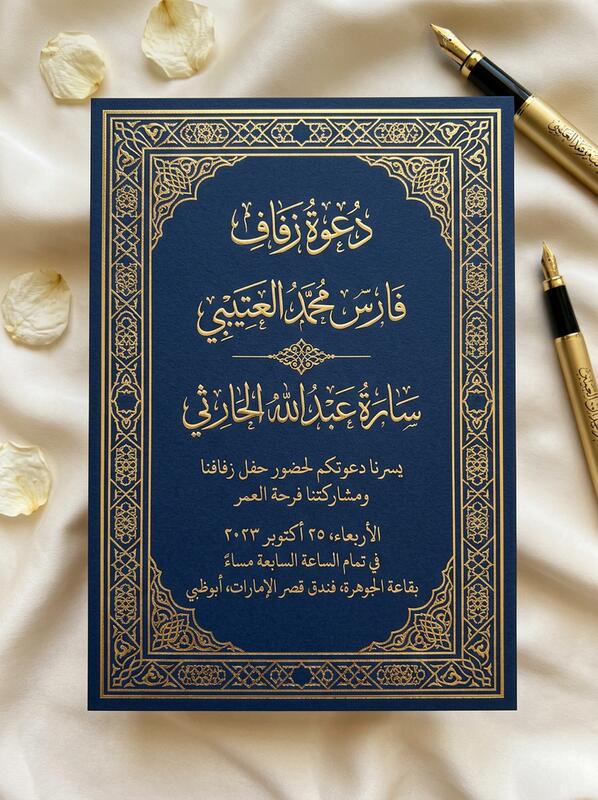 دُعوةُ زفافِ
فَارسّ مُحمَّدُ العَتِيبْيِ
سَارةُ عَبْدُ اللهُ الحَارِثي
يسرنا دعوتكم لحضور حفل زفافنا
ومشاركتنا فرحة العمر
الأربعاء، ٢٥ أكتوبر ٢٠٢٣
في تمام الساعة السابعة مساءً
بقاعة الجوهرة، فندق قصر الإمارات، أبوظبي